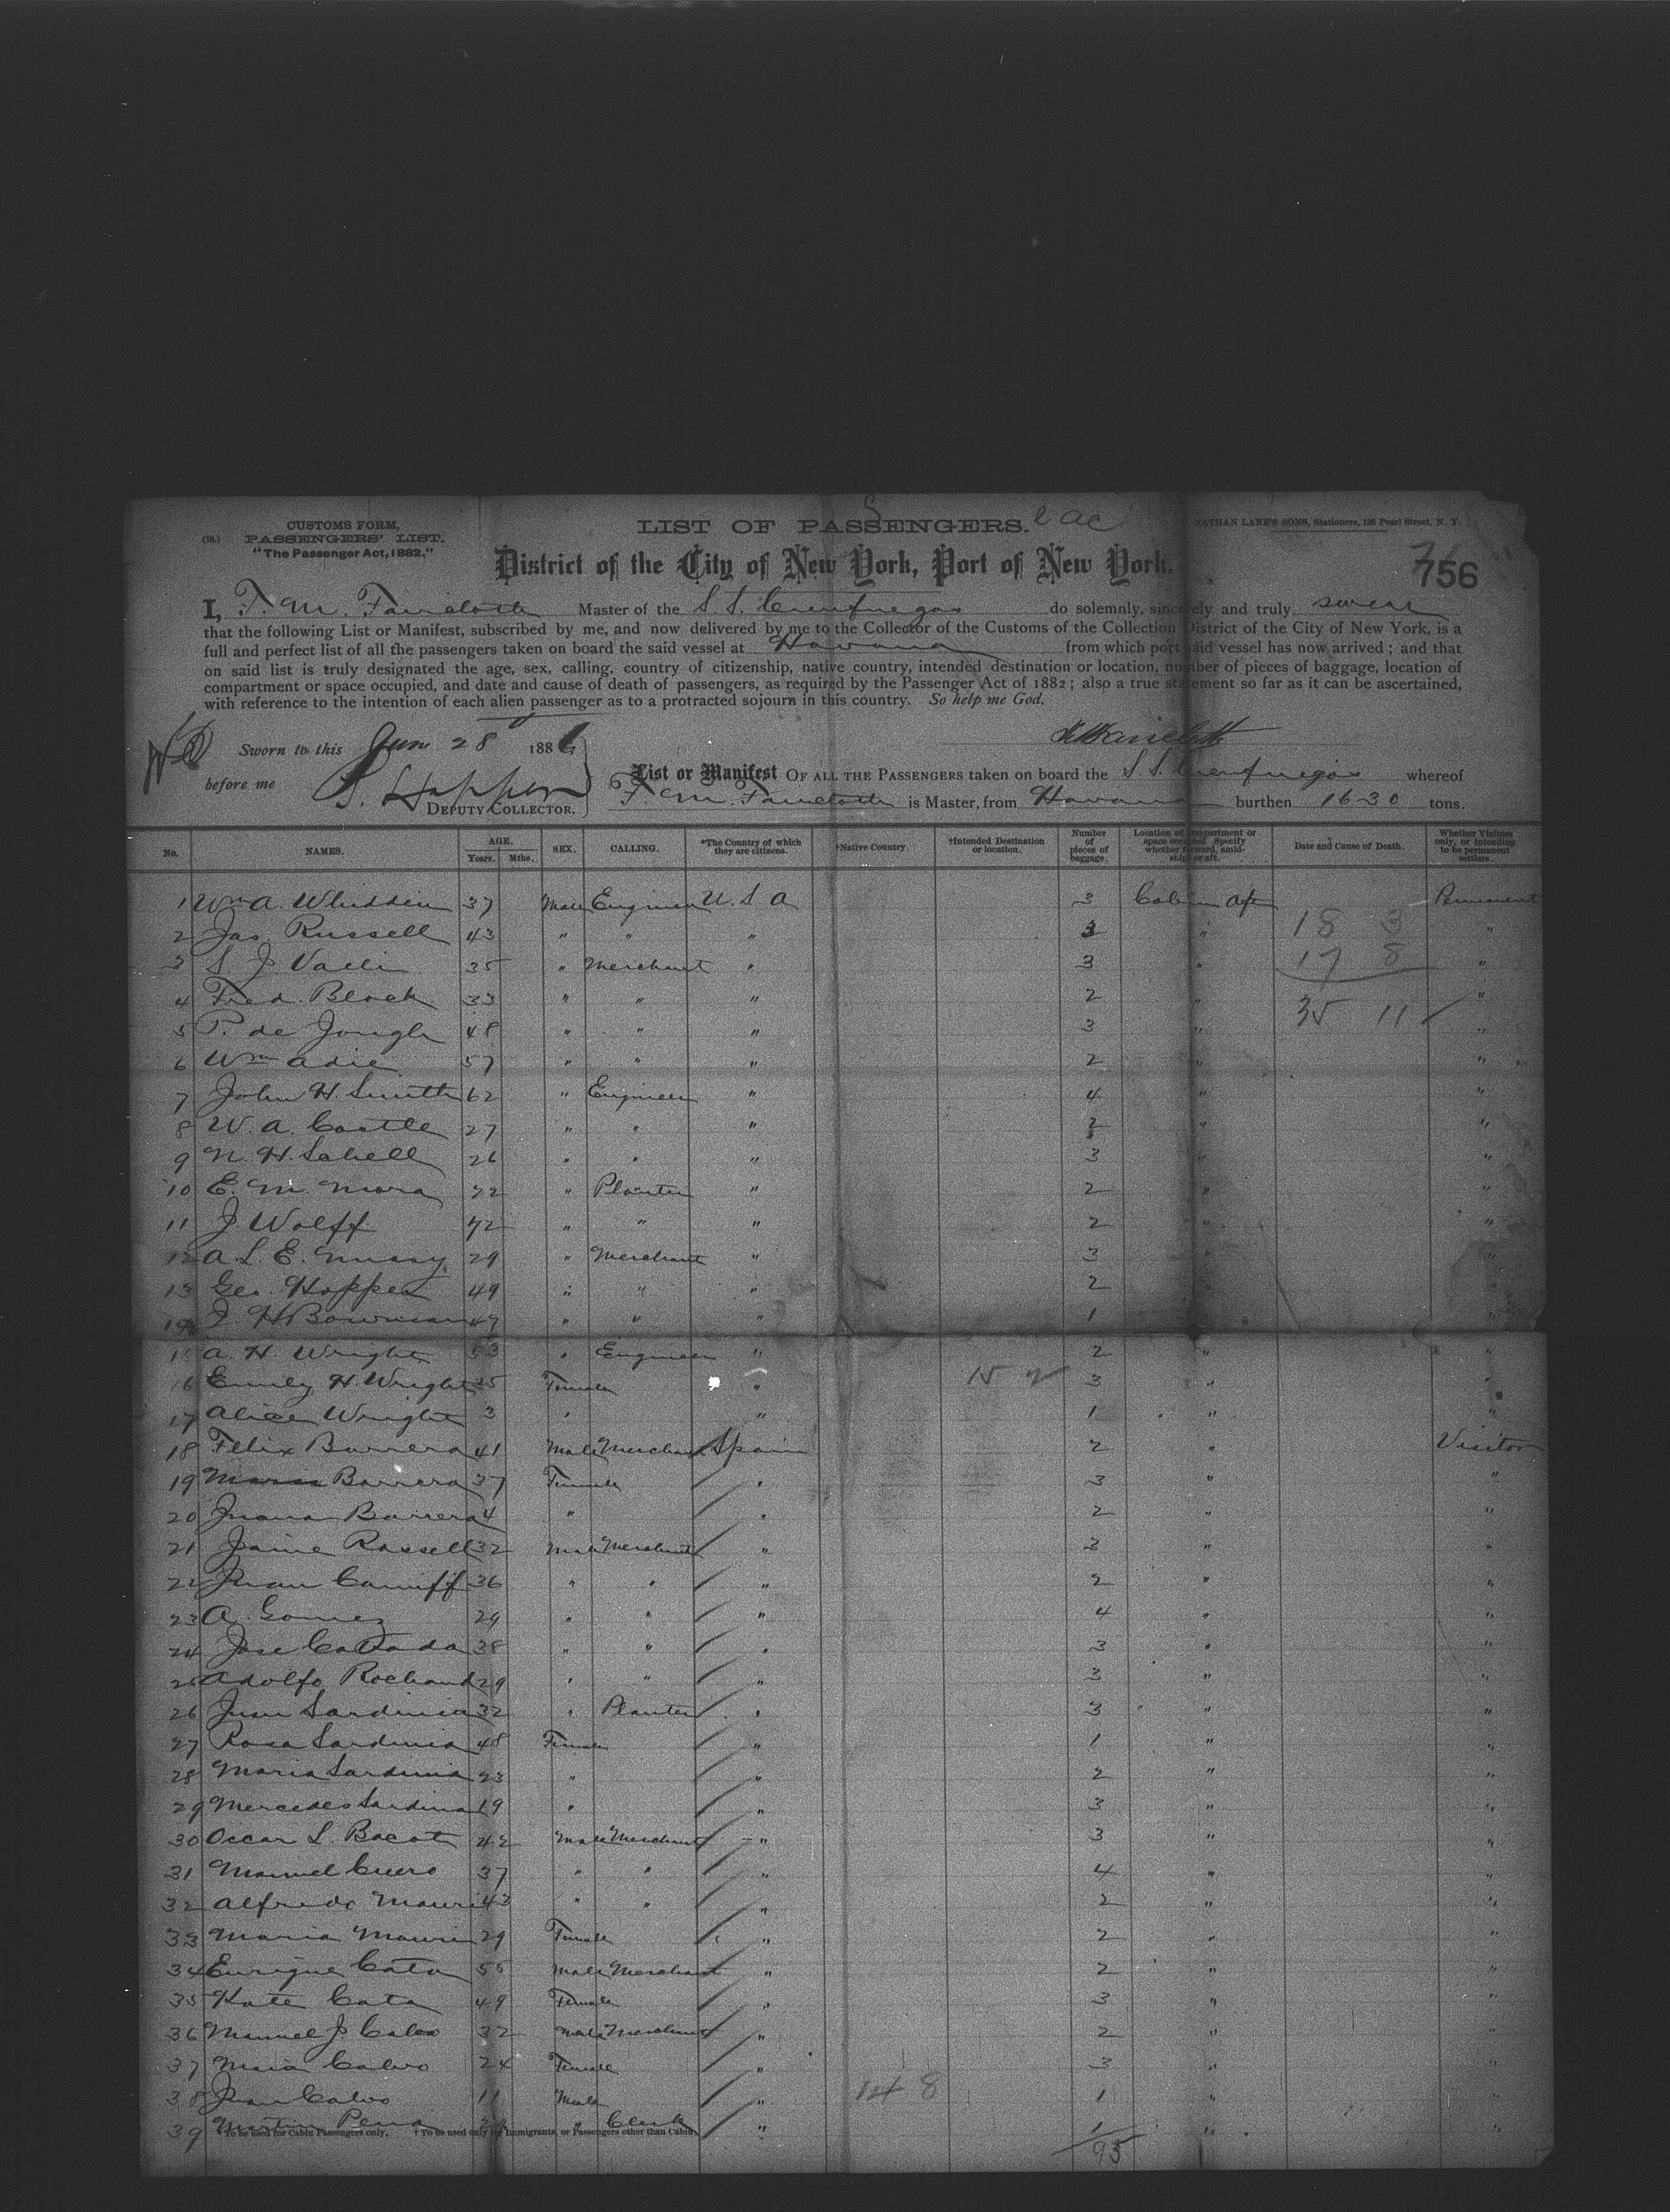 CUSTOMS FORM,
(18.) PASSENGERS' LIST.
"The Passenger Act, 1882."
LIST OF PASSENGERS.
NATHAN LANE'S SONS, Stationers, 126 Pearl Street, N. Y.
District of the City of New York, Port of New York.
756
I, F. M. Faircloth Master of the S. S. Cienfuegos do solemnly, sincerely and truly swear
that the following List or Manifest, subscribed by me, and now delivered by me to the Collector of the Customs of the Collection District of the City of New York, is a
full and perfect list of all the passengers taken on board the said vessel at Havana from which port said vessel has now arrived; and that
on said list is truly designated the age, sex, calling, country of citizenship, native country, intended destination or location, number of pieces of baggage, location of
compartment or space occupied, and date and cause of death of passengers, as required by the Passenger Act of 1882; also a true statement so far as it can be ascertained,
with reference to the intention of each alien passenger as to a protracted sojourn in this country. So help me God.
Sworn to this 28 188
before me
DEPUTY COLLECTOR.
List or Manifest OF ALL THE PASSENGERS taken on board the S. S. Cienfuegos whereof
F. M. Faircloth is Master, from Havana burthen 1630 tons.
No. NAMES. AGE. Years. Mths. SEX. CALLING. *The Country of which they are citizens. †Native Country. †Intended Destination or location. Number of pieces of baggage. Location of compartment or space occupied. Specify whether forward, amidships or aft. Date and Cause of Death. Whether Visitors only, or intending to be permanent settlers.
1 Wm A. Whidden 37 Male Engineer U. S. A 3 Cabin Aft Permanent
2 Jas. Russell 43 " " " 3 " 18 3 "
3 S. J. 35 " Merchant " 3 " 17 8 "
4 Fred. Block 33 " " " 2 " 35 11 "
5 P. de Jongh 48 " " " 3 " "
6 Wm Adie 57 " " " 2 " "
7 John H. Smith 62 " Engineer " 4 " "
8 W. A. Castle 27 " " " 2 " "
9 N. H. Schell 26 " " " 3 " "
10 E. M. Mora 22 " Planter " 2 " "
11 J. Wolff 42 " " " 2 " "
12 A. L. E. 29 " Merchant " 3 " "
13 Geo. Hopper 49 " " " 2 " "
14 J. H. Bowman 47 " " " 1 "
15 A. H. Wright 53 " Engineer " 2 " "
16 Emily H. Wright 35 Female " 15 2 3 " "
17 Alice Wright 3 " " 1 " "
18 Felix Barrera 41 Male Merchant Spain 2 " Visitor
19 Maria Barrera 37 Female " 3 " "
20 Juana Barrera 4 " " 2 " "
21 Jaime Rossell 32 Male Merchant " 3 " "
22 Juan Caniff 36 " " " 2 " "
23 A. Gomez 29 " " " 4 " "
24 Jose Cattada 38 " " " 3 " "
25 Adolfo 29 " " " 3 " "
26 Juan Sardinia 32 " Planter " 3 " "
27 Rosa Sardinia 48 Female " 1 " "
28 Maria Sardinia 23 " " 2 " "
29 Mercedes Sardinia 19 " " 3 " "
30 Oscar L. Bacot 42 Male Merchant " 3 " "
31 Manuel 37 " " " 4 " "
32 Alfredo Mauri 43 " " " 2 " "
33 Maria Mauri 29 Female " 2 " "
34 Enrique Cata 55 Male Merchant " 2 " "
35 Kate Cata 49 Female " 3 " "
36 Manuel J. Calvo 32 Male Merchant " 2 " "
37 Maria Calvo 24 Female " 3 " "
38 Juan Calvo 11 Male " 14 8 1 " "
39 Martin Pena " Clerk " 1 " "
*To be used for Cabin Passengers only. †To be used only for Immigrants, or Passengers other than Cabin.
95